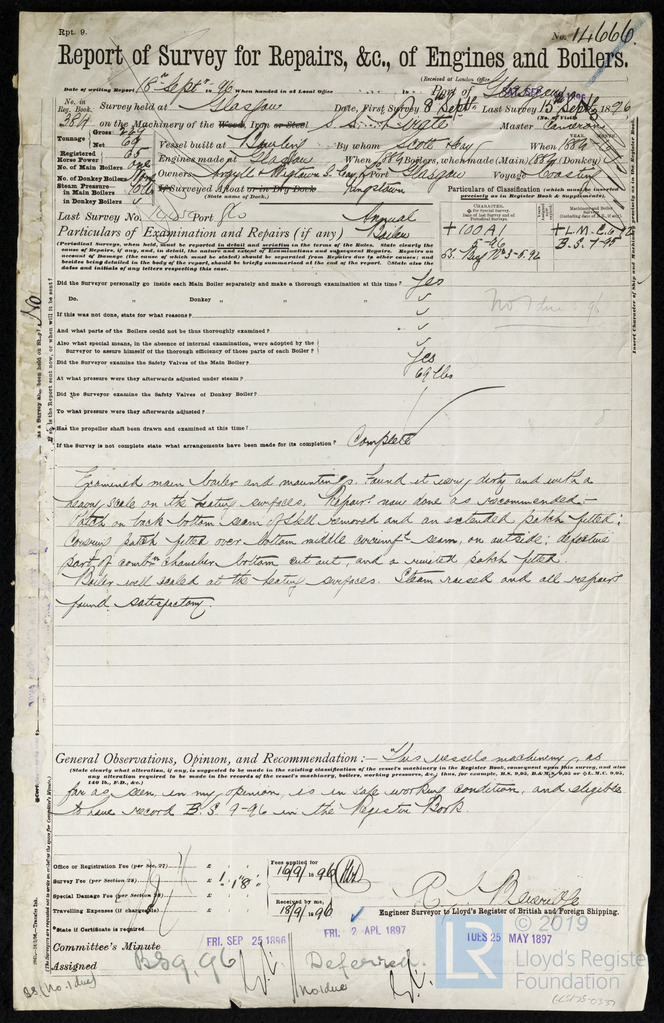 Rpt. 9.
No. 14666.
Report of Survey for Repairs, &c., of Engines and Boilers.
(Received at London Office
Date of writing Report 18th Septr 96 When handed in at Local Office Port of Glasgow
No. in Reg. Book. Survey held at Glasgow Date, First Survey 8 Septr Last Survey 15th Septr 1896
(No. of Visits)
384 on the Machinery of the Wood, Iron or Steel S.S. Pirate Master Cameron
Tonnage Gross 269
Net 69
Vessel built at Bowling By whom Scott & Coy When 1884
Registered Horse Power 65
Engines made at Glasgow When 1884 Boilers, when made (Main) 1884 (Donkey)
No. of Main Boilers
No. of Donkey Boilers
Owners Argyll & Wigtown S. Coy Port Glasgow Voyage Coasting
Steam Pressure in Main Boilers
in Donkey Boilers
If Surveyed Afloat or in Dry Dock Kingstown
(State name of Dock.)
Particulars of Classification (which must be inserted precisely as in Register Book & Supplements).
Last Survey No. Port Glo Annual
Particulars of Examination and Repairs (if any) Boiler
+100A1
5-96
+L.M.C. 6.92
B.S. 7-95
(Periodical Surveys, when held, must be reported in detail and seriatim in the terms of the Rules. State clearly the
cause of Repairs, if any, and, in detail, the nature and extent of Examinations and subsequent Repairs. Repairs on
account of Damage (the cause of which must be stated) should be separated from Repairs due to other causes; and
besides being detailed in the body of the report, should be briefly summarised at the end of the report. State also the
dates and initials of any letters respecting this case.
No 1 due 96
Did the Surveyor personally go inside each Main Boiler separately and make a thorough examination at this time? Yes
Do. " Donkey " " "
If this was not done, state for what reasons?
And what parts of the Boilers could not be thus thoroughly examined?
Also what special means, in the absence of internal examination, were adopted by the
Surveyor to assure himself of the thorough efficiency of those parts of each Boiler?
Did the Surveyor examine the Safety Valves of the Main Boiler? Yes
At what pressure were they afterwards adjusted under steam? 69 lbs
Did the Surveyor examine the Safety Valves of Donkey Boiler?
To what pressure were they afterwards adjusted?
Has the propeller shaft been drawn and examined at this time?
If the Survey is not complete state what arrangements have been made for its completion? Complete
Examined main boiler and mountings. Found it very dirty and with a
heavy scale on the heating surfaces. Repairs now done as recommended:-
Patch on back bottom seam of shell removed and an extended patch fitted;
covering patch fitted over bottom middle circumftl seam, on outside; defective
part of combn chamber bottom cut out, and a riveted patch fitted.
Boiler well scaled at the heating surfaces. Steam raised and all repairs
found satisfactory.
General Observations, Opinion, and Recommendation:— This vessels machinery, as
(State clearly what alteration, if any, is suggested to be made in the existing classification of the vessel's machinery in the Register Book, consequent upon this survey, and also
any alteration required to be made in the records of the vessel's machinery, boilers, working pressures, &c.; thus, for example, B.S. 9,95, B.&M.S. 9,95 or L.M.C. 9,95,
140 lb., F.D., &c.)
far as seen, in my opinion, is in safe working condition, and eligible
to have record B.S. 9-96 in the Register Book.
Office or Registration Fee (per Sec. 27) £ : :
Survey Fee (per Section 28) £ 1 : 18 :
Special Damage Fee (per Section 28) £ : :
Travelling Expenses (if chargeable) £ : :
Fees applied for 16/9/1896
Received by me, 18/9/1896
Engineer Surveyor to Lloyd's Register of British and Foreign Shipping.
*State if Certificate is required
Committee's Minute FRI. SEP 25 1896 FRI. 2 APL 1897 TUES 25 MAY 1897
Assigned BS 9,96 Deferred
No 1 due
BS (No. 1 due)
LR
© 2019
Lloyd's Register
Foundation